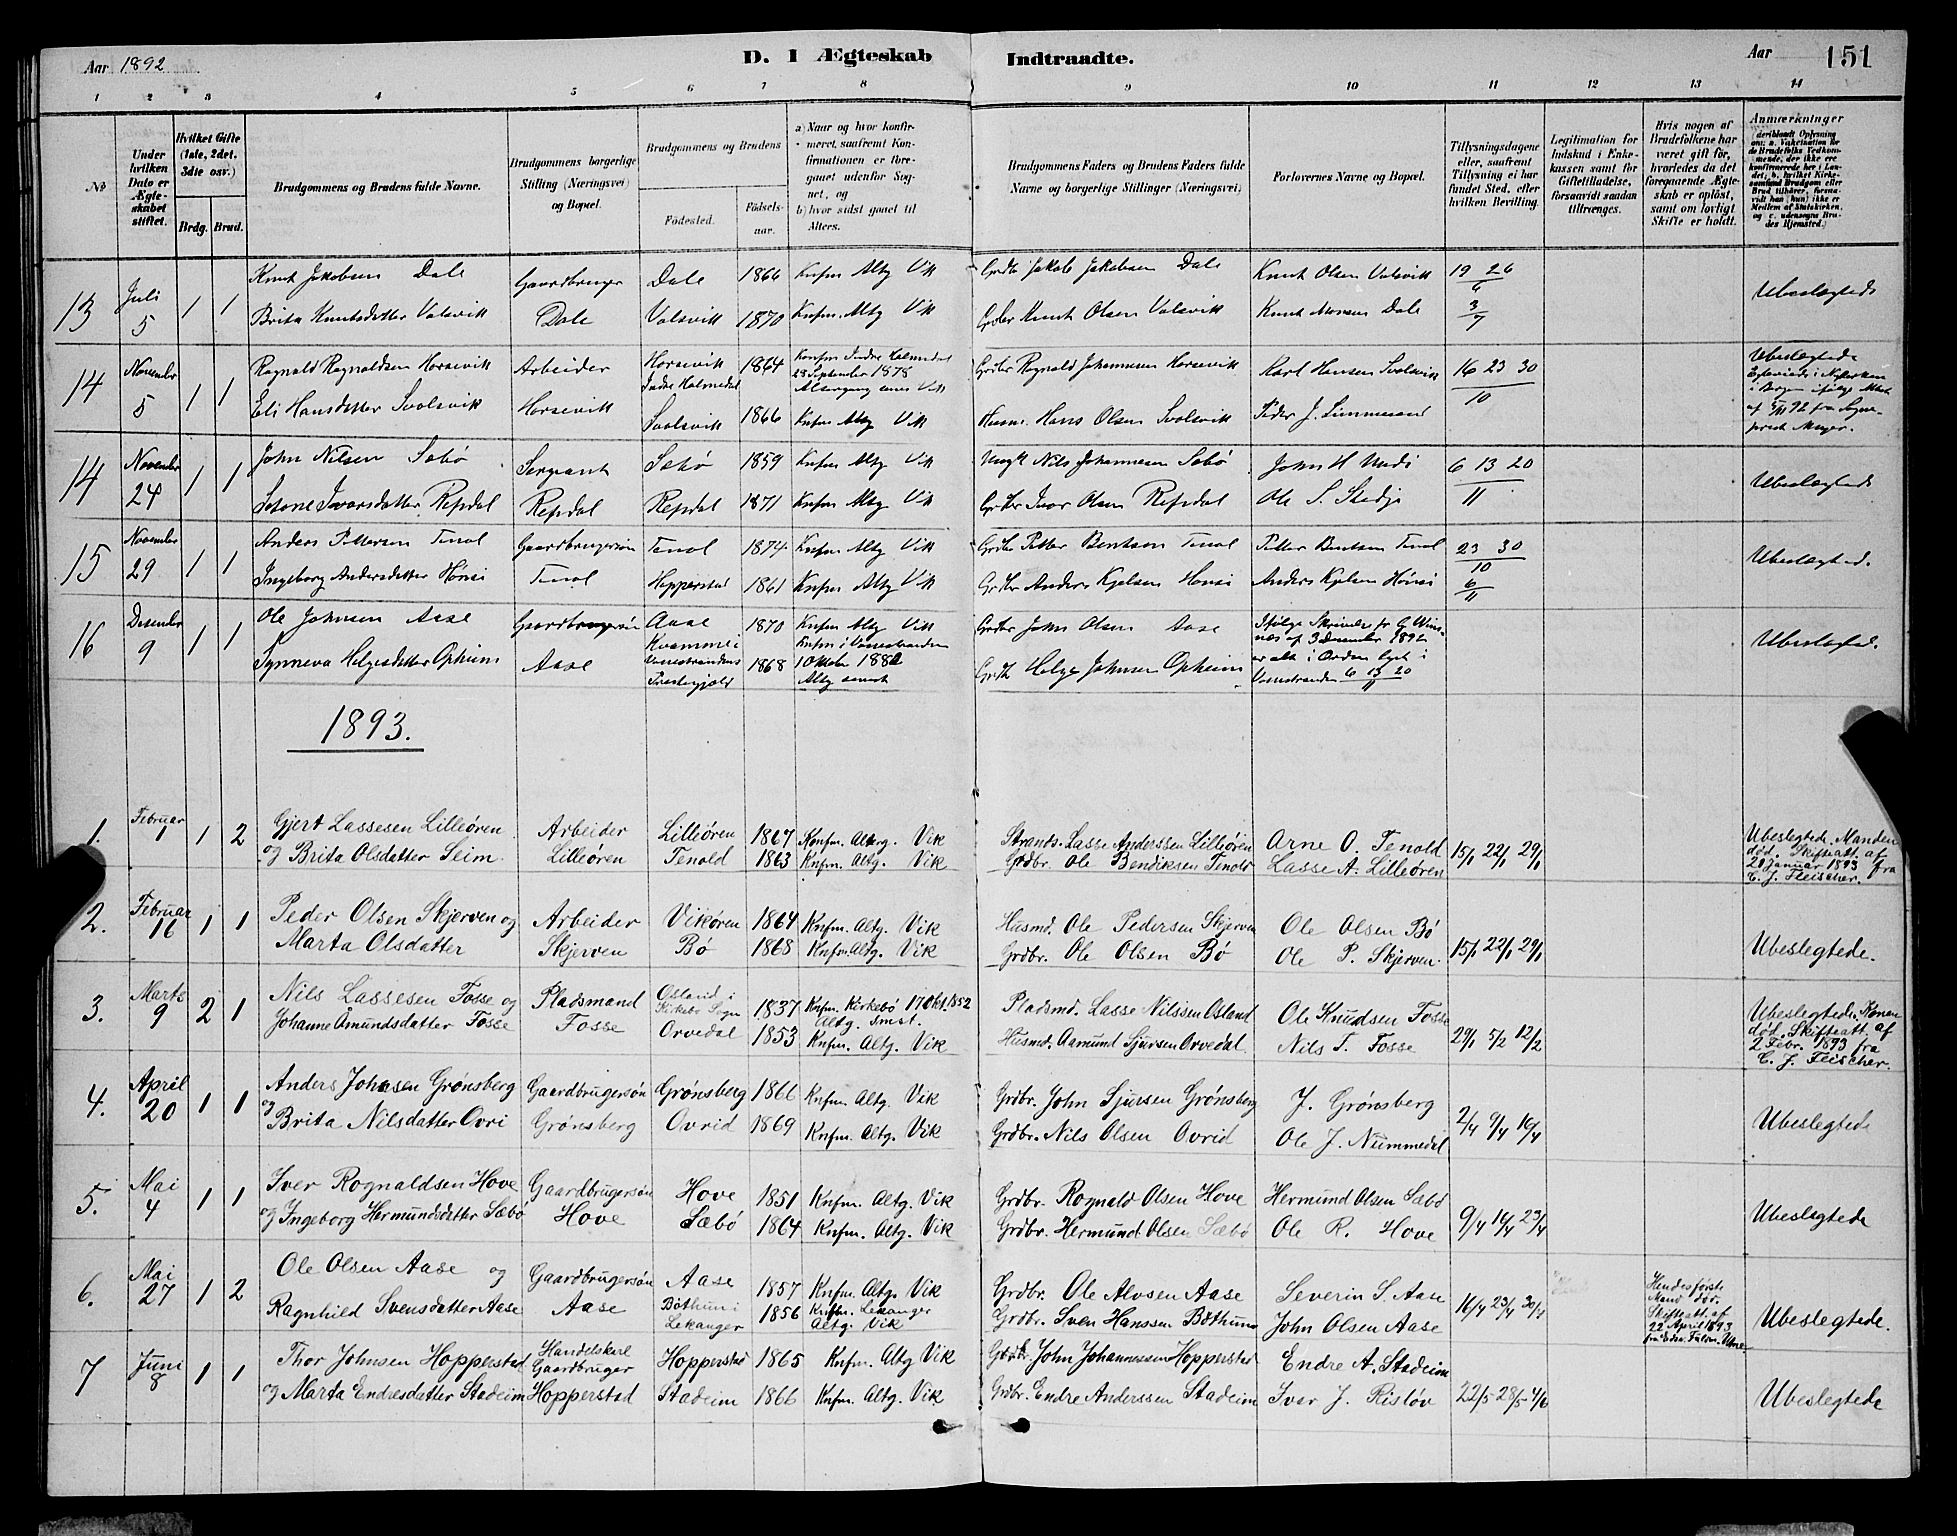 Aar 1892
D. I Ægteskab Indtraadte.
Aar 151
1 2 3 4 5 6 7 8 9 10 11 12 13 14
№
Under hvilken Dato er Ægteskabet stiftet.
Hvilket Gifte (1ste, 2det, 3dte osv.)
Brdg. Brud.
Brudgommens og Brudens fulde Navne.
Brudgommens borgerlige Stilling (Næringsvei) og Bopæl.
Brudgommens og Brudens
Fødested. Fødselsaar.
a) Naar og hvor konfirmeret, saafremt Konfirmationen er foregaaet udenfor Sognet, og
b) hvor sidst gaaet til Alters.
Brudgommens Faders og Brudens Faders fulde Navne og borgerlige Stillinger (Næringsvei)
Forlovernes Navne og Bopæl.
Tillysningsdagene eller, saafremt Tillysning ei har fundet Sted, efter hvilken Bevilling.
Legitimation for Indskud i Enkekassen samt for Giftetilladelse, forsaavidt saadan tiltrænges.
Hvis nogen af Brudefolkene har været gift før, hvorledes da det foregaaende Ægteskab er opløst, samt om lovligt Skifte er holdt.
Anmærkninger
(deriblandt Oplysning om: a. Vakcination for de Brudefolks Vedkommende, der ikke ere konfirmerede her i Landet; b. hvilket Kirkesamfund Brudgom eller Brud tilhører, forsaavidt han (hun) ikke er Medlem af Statskirken, og c. udensogns Brudes Hjemsted.)
13 Juli 5 1 1 Knut Jakobsen Dale Gaardbruger Dale 1866 Knfm Altg Vik Grdbr Jakob Jakobsen Dale Knut Olsen Valsvik 19 26/6
Brita Knutsdatter Valsvik Dale Valsvik 1870 Knfm. Altg Vik Grdbr Knut Olsen Valsvik Knut Monsen Dale 3/7 Ubeslegtede
14 November 5 1 1 Ragnald Ragnaldsen Horsevik Arbeider Horsevik Indre Holmedal 1864 Konfm Indre Holmedal 28 September 1878 Altergang senest Vik Grdbr Ragnald Johannesen Horsevik Karl Hansen Svolsvik 16 23 30/10
Eli Hansdatter Svolsvik Horsevik Svolsvik 1866 Knfm Altg Vik Husm. Hans Olsen Svolsvik Peder J. Limmesand Ubeslegtede
14 November 24 1 1 John Nilsen Sæbø Sergeant Sæbø 1859 Knfm Altg Vik Nils Johannesen Sæbø John H Undi 6 13 20/11
Ivarsdatter Refsdal Refsdal Refsdal 1871 Knfm Altg Vik Grdbr Ivar Olsen Refsdal Ole S. Stedje Ubeslegtede
15 November 29 1 1 Anders Pettersen Tenol Gaardbrugersøn Tenol 1874 Knfm Altg Vik Grdbr Petter Bentsen Tenol Petter Bentsen Tenol 23 30/10
Ingeborg Andersdatter Hønsi Tenol Hopperstad 1861 Knfm Altg Vik Grdbr Anders Kjelsen Hønsi Anders Kjelsen Hønsi 6/11 Ubeslegtede.
16 Desember 9 1 1 Ole Johnsen Aase Gaardbrugersøn Aase 1870 Knfm Altg Vik Grdbr John Olsen Aase Ifølge Skrivelse fr af 3 Desember 1892 er alt i Orden lyst i Vossestranden 6 13 20/11
Synneva Helgesdatter Opheim Aase Kvamme i Vossestrandens Prestegjeld 1868 Knfm i Vossestranden 1 Oktober 1882 Altg senest Grdb Helge Johnsen Opheim Ubeslegted.
1893.
1. Februar 1 1 2 Gjert Lassesen Lilleøren Arbeider Lilleøren 1867 Konfm. Altrg. Vik Strands. Lasse Anderssen Lilleøren Arne O. Tenold 15/1 22/1 29/1
og Brita Olsdatter Seim. Lilleøren Tenold 1863 Knfm. Altg. Vik Grdbr. Ole Bendiksen Tenold Lasse A. Lilleøren Ubeslegtede. Manden død. Skifteatt. af 20 januar 1893 fra C. J. Fleischer.
2. Februar 16 1 1 Peder Olsen Skjerven og Arbeider Vikøren 1864 Knfm. Altg. Vik Husmd. Ole Pedersen Skjerven Ole Olsen Bø
Marta Olsdatter Skjerven Bø 1868 Knfm. Altg. Vik Grdbr. Ole Olsen Bø Ole P. Skjerven. 15/1 22/1 29/1 Ubeslegtede.
3. Marts 9 2 1 Nils Lassesen Fosse og Pladsmand Osland i Kirkebø Sogn 1837 Knfm. Kirkebø 17 Okt. 1852 Altg. Smst. Pladsmd. Lasse Nilssen Osland Ole Knudsen Fosse
Johanne Åmundsdatter Fosse Fosse Orvedal 1853 Knfm. Altg. Vik Husmd. Aamund Sjursen Orvedal. Nils T. Fosse 29/1 5/2 12/2 Ubeslegtede. Konen død. Skifteatt. af 2 Febr. 1893 fra C. J. Fleischer.
4. April 20 1 1 Anders Johnsen Grønsberg Gaardbrugersøn Grønsberg 1866 Knfm. Altg. Vik Grdbr. John Sjursen Grønsberg J. Grønsberg
og Brita Nilsdatter Ovri Grønsberg Ovrid 1869 Knfm. Altg. Vik Grdbr. Nils Olsen Ovrid Ole J. Nummedal 2/4 9/4 16/4 Ubeslegtede
5. Mai 4 1 1 Iver Rognaldsen Hove Gaardbrugersøn Hove 1851 Knfm. Altg. Vik Grdbr. Rognald Olsen Hove Hermund Olsen Sæbø
og Ingeborg Hermundsdatter Sæbø Hove Sæbø 1864 Knfm. Altg. Vik Grdbr. Hermund Olsen Sæbø Ole R. Hove 9/4 16/4 23/4 Ubeslegtede
6. Mai 27 1 2 Ole Olsen Aase og Gaardbrugersøn Aase 1857 Knfm. Altg. Vik Grdbr. Ole Alvsen Aase Severin S. Aase
Ragnhild Svensdatter Aase Aase Bøthun i Lekanger 1856 Knfm. Lekanger Altg. Vik Grdbr. Sven Hanssen Bøthun John Olsen Aase 16/4 23/4 30/4 Hendes første Mand død. Skifteatt. af 22 April 1893 Ubeslegtede.
7 Juni 8 1 1 Thor Johnsen Hopperstad Handelskarl Gaardbruger Hopperstad 1865 Knfm. Altg Vik Gardbr. John Johannessen Hopperstad Endre A. Stadeim
og Marta Endresdatter Stadeim Hopperstad Stadeim 1866 Knfm. Altg. Vik Grdbr. Endre Anderssen Stadeim Iver J. Risløv 22/5 28/5 4/6 Ubeslegtede